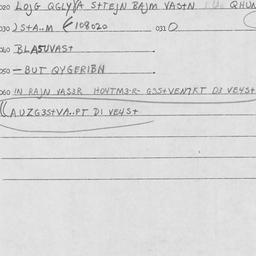 020 LOJG QGLYYA S+TEJN BAJM VAS+N QHUN
030 ) S+A..M 108020 031 O
040 BLASUVAST
050 — BUT QYGERIBN
060 IN RAJN VAS3R HOVTM3-R- G3S+VEN7RT D3 VE4S+
AUZG3S+VA..PT D1 VE4S+